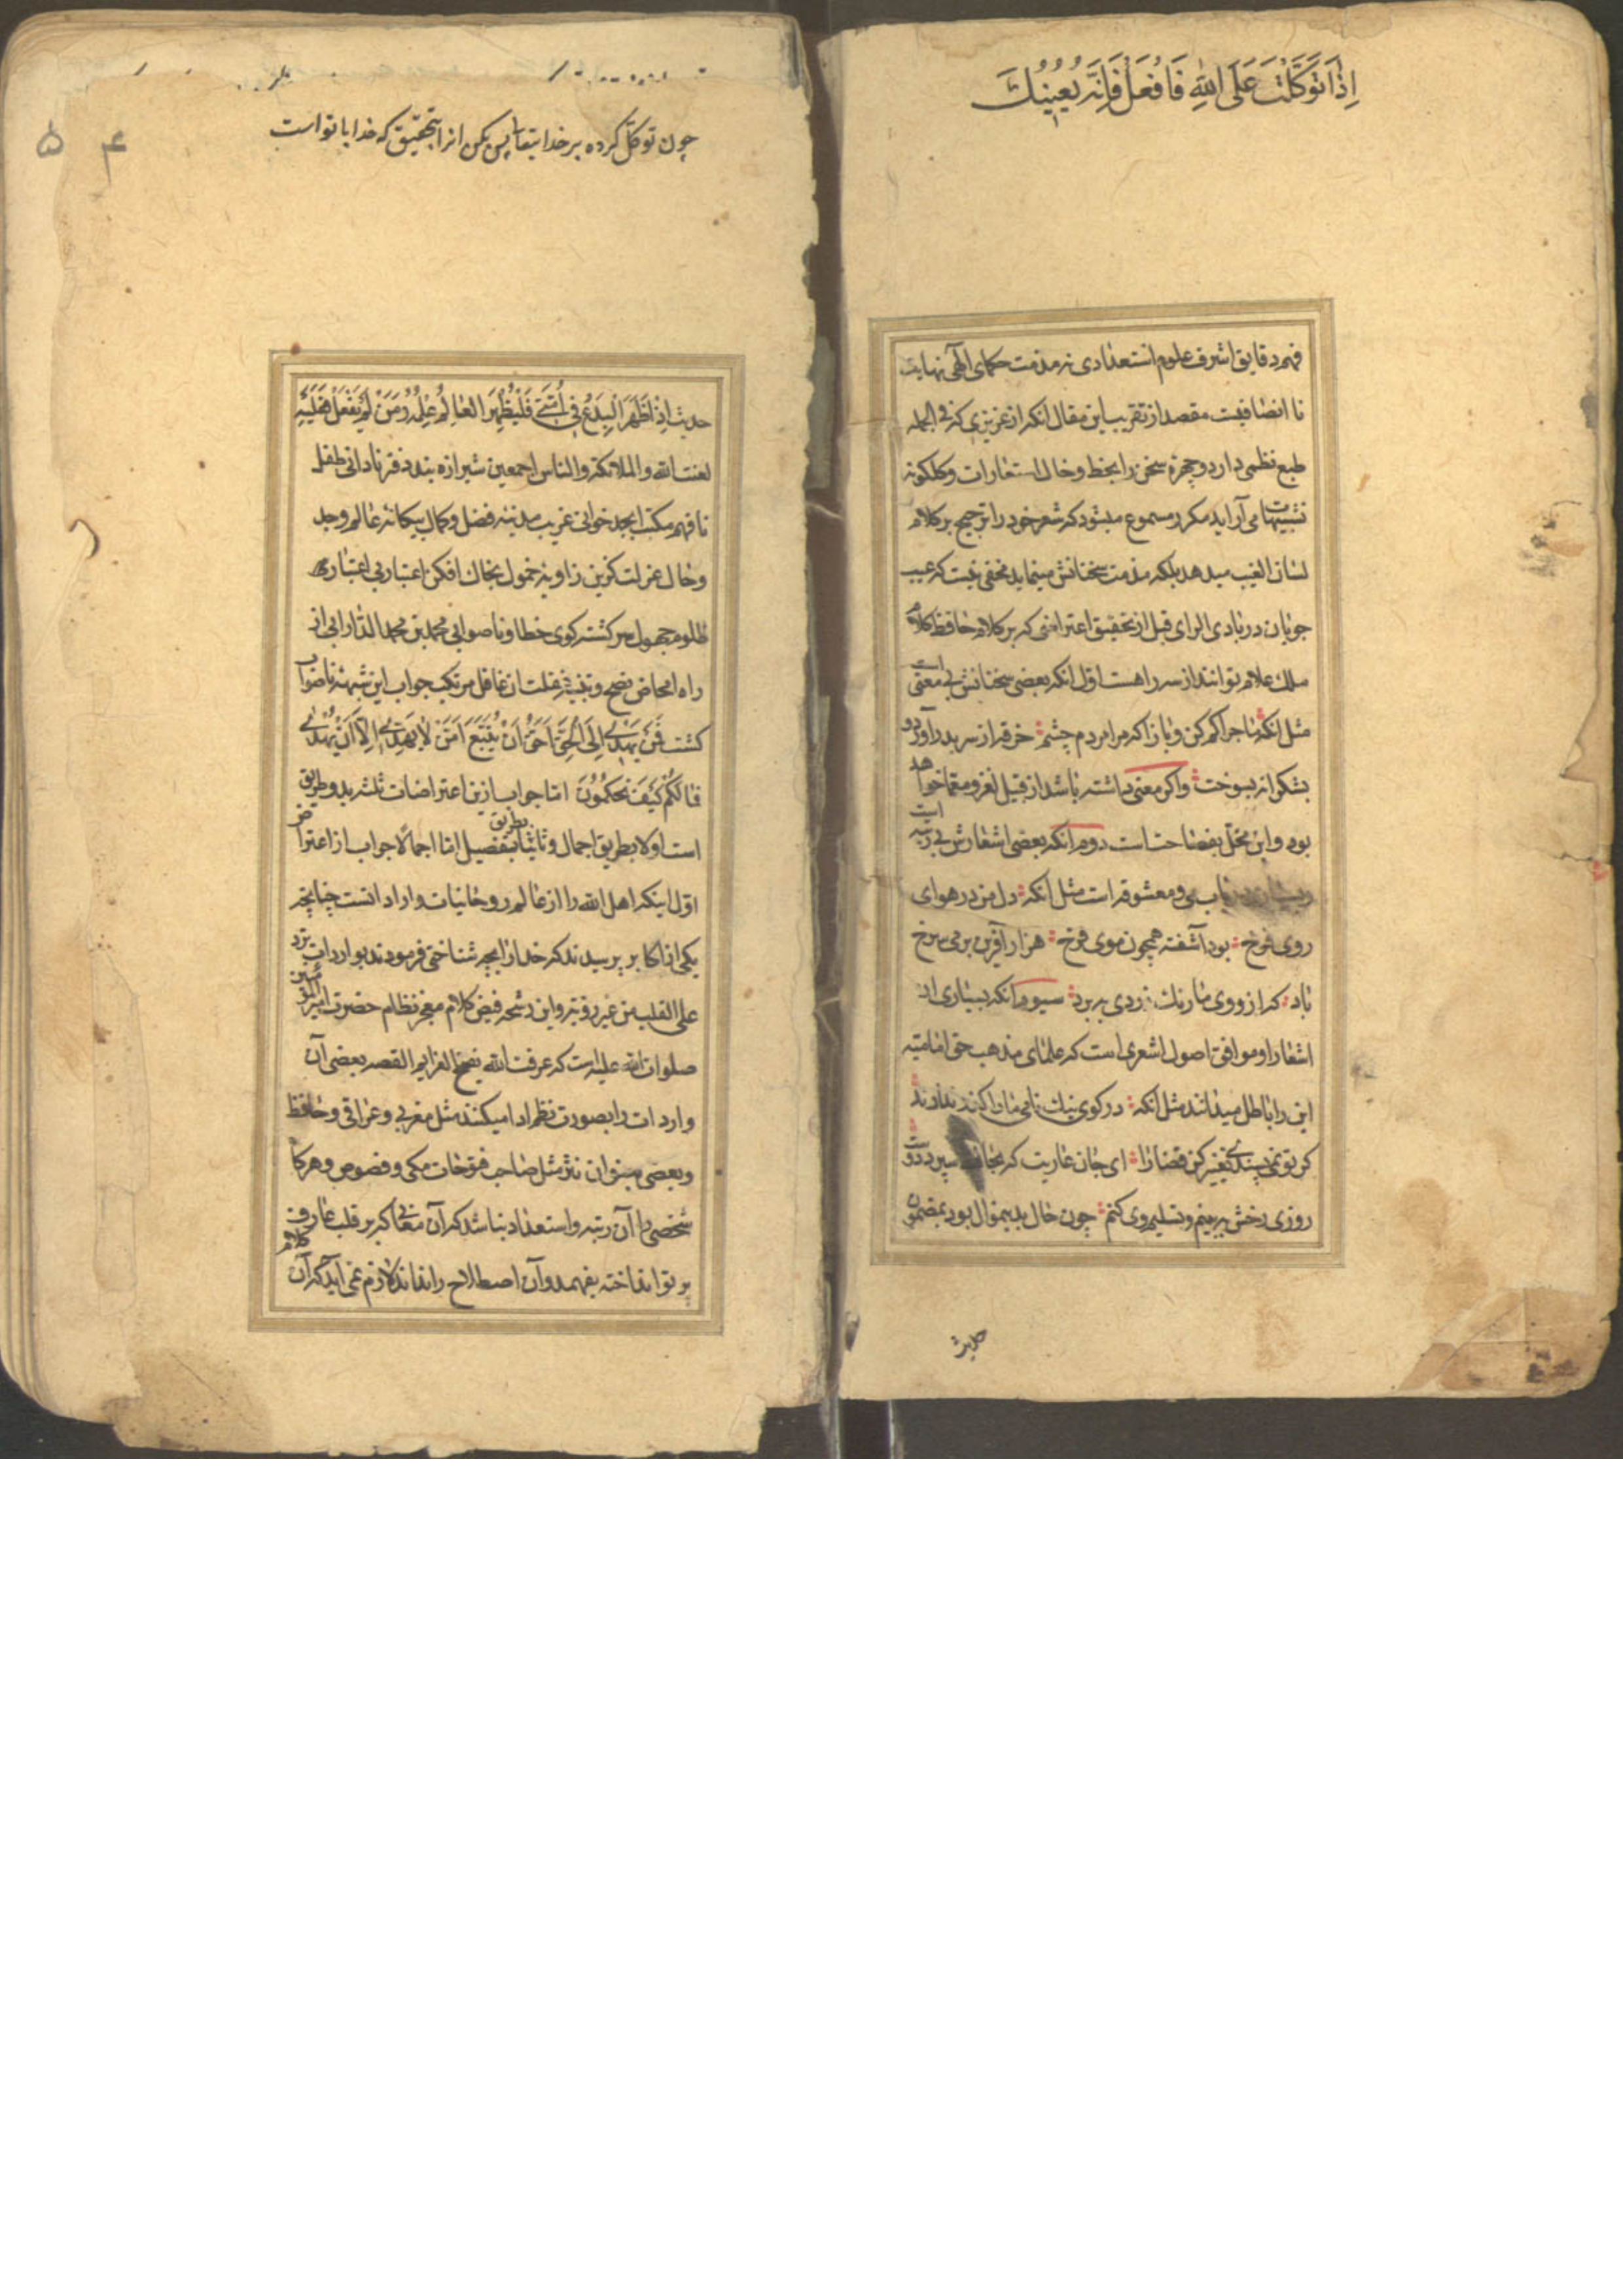 اِذَا تَوَكَّلْتَ عَلَی اللّٰهِ فَافْعَلْ فَاِنَّهُ يُعِينُكَ
فهم دقایق اشرف علوم استعدادی نه مذمت حکمای الهی نهایت
نا انصافیست مقصد از تقریب این مقال انکه از عزیزی که فی الجمله
طبع نظمی دارد و چهرهٔ سخن را بخط و خال استعارات و کلکونه
تشبیهات می آراید مکرر مسموع میشود که شعر خود را ترجیح بر کلام
لسان الغیب میدهد بلکه مذمت سخنانش مینماید مخفی نیست که عیب
جویان در بادی الرای قبل از تحقیق اعتراضی که بر کلام حافظ کلام
ملک علام توانند از سه راهست اول انکه بعضی سخنانش بی معنی است
مثل انکه ماجرا کم کن و باز آ که مرا مردم چشم خرقه از سر بدر آورد و
بشکرانه بسوخت واکر معنی داشته باشد از قبیل لغز و معما خواهد
بود و این مخل بفصاحت است دوم انکه بعضی اشعارش بی رتبه است
باب می و معشوقه است مثل انکه دل من در هوای
روی فرخ بود آشفته همچون موی فرخ هزار آفرین بر می سرخ
باد که از روی ما رنک زردی ببرد سیوم انکه بسیاری از
اشعار او موافق اصول اشعری است که علمای مذهب حق امامیه
این را باطل میدانند مثل انکه در کوی نیک نامی ما را گذر ندادند
کر تو نمی پسندی تغییر کن قضا را ای جان عاریت که بحافظ سپرد دوست
روزی رخش ببینم و تسلیم وی کنم چون حال بدین منوال بود بمضمون
حدیث
چون توکّل کرده بر خدا یتعا پس بکن انرا بتحقیق که خدا با تو است
۴ ۵
حدیث اِذَا ظَهَرَ الْبِدَعُ فِی اُمَّتِی فَلْیُظْهِرِ الْعَالِمُ عِلْمَهُ وَمَنْ لَمْ یَفْعَلْ فَعَلَیْهِ
لعنت الله والملائکة والناس اجمعین شیرازه بند دفتر نادانی طفل
نافهم مکتب ابجد خوانی غریب مدینه فضل و کمال بیکانه عالم وجد
و حال عزلت کزین زاویه خمول بخاک افکن اعتبار بی اعتباری
ظلوم جهول سرکشته کوی خطا و ناصوابی محمد بن محمد الدارابی از
راه امحاض نصح و تنبیه غفلت ان غافل مرتکب جواب این شبهه ناصواب
کشت فَمَنْ یَهْدِی اِلَی الْحَقِّ اَحَقُّ اَنْ یُتَّبَعَ اَمَّنْ لَا یَهِدِّی اِلَّا اَنْ یُهْدٰی
فَمَا لَکُمْ کَیْفَ تَحْکُمُونَ اما جواب از این اعتراضات ثلثه بدو طریق
است اولا بطریق اجمال و ثانیا بطریق تفصیل اما اجمالًا جواب از اعتراض
اوّل اینکه اهل الله را از عالم روحانیات وارداتست چنانچه
یکی از اکابر پرسیدند که خدا را بچه شناختی فرمودند بواردات ترد
علی القلب من غیر رؤیة و این رشحه فیض کلام معجز نظام حضرت امیر المؤمنین
صلوات الله علیه است که عرفت الله بفسخ العزایم القصه بعضی آن
واردات را بصورت نظم ادا میکنند مثل مغربی و عراقی و حافظ
و بعضی بعنوان نثر مثل صاحب فتوحات مکی و فصوص و هرکاه
شخصی را آن رتبه و استعداد نباشد که آن معانی که بر قلب عارف
پرتو انداخته بفهمد و آن اصطلاح را نداند لازم نمی آید که آن کلام